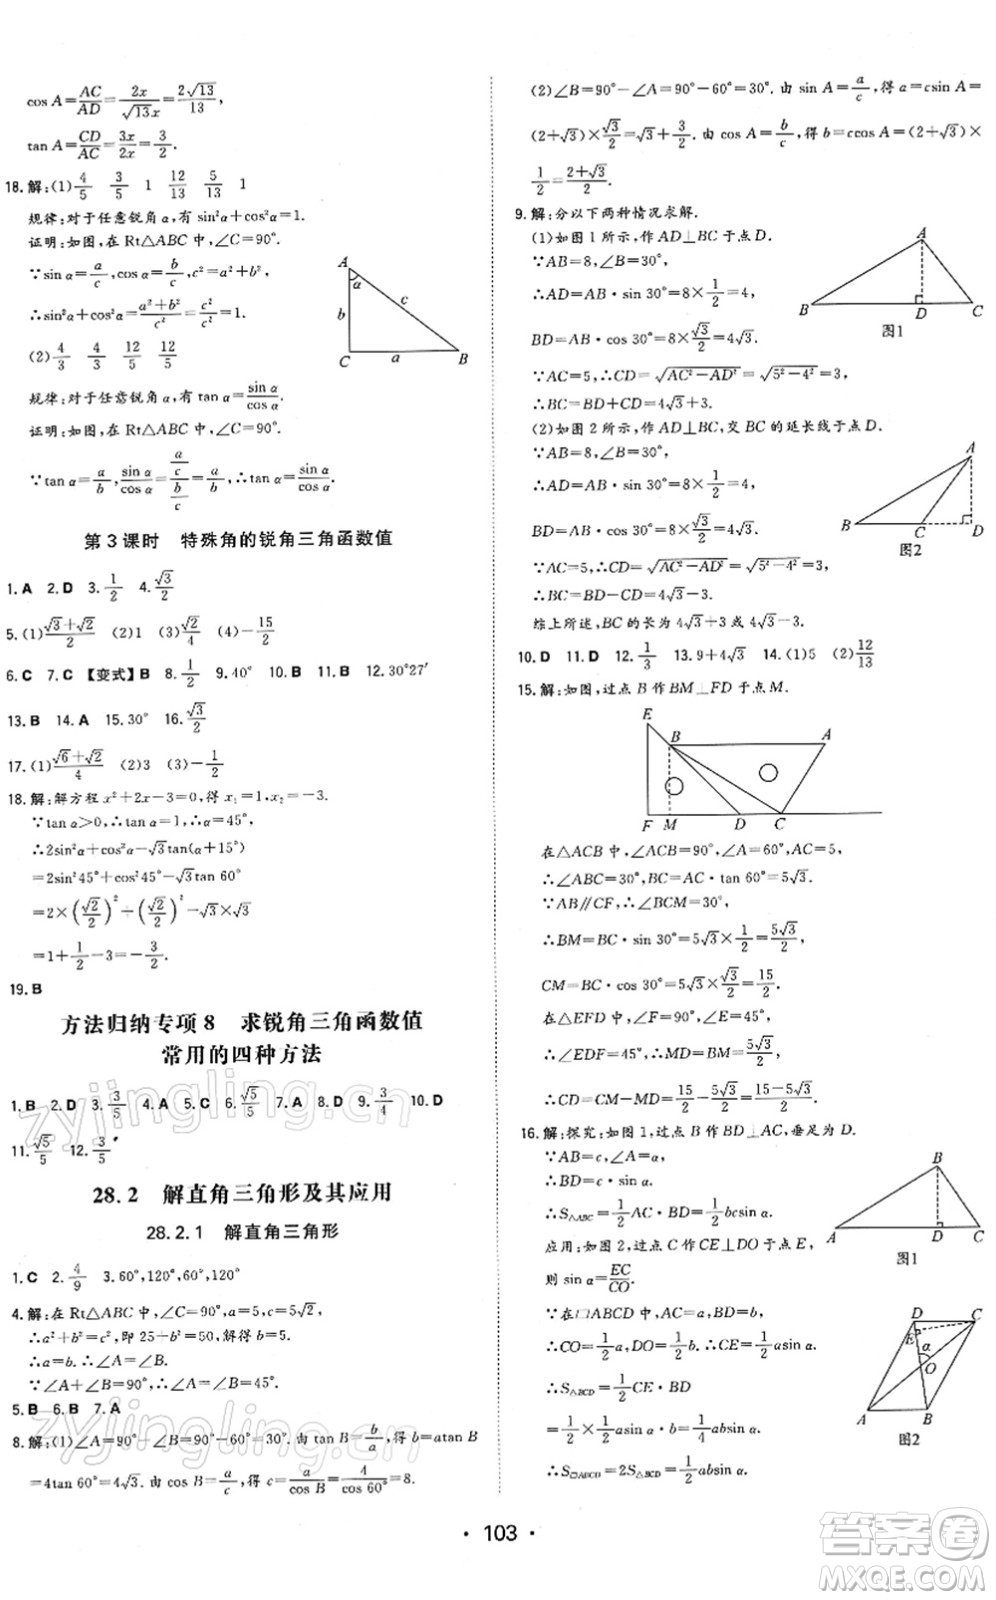 cos A=AC/AD=2x/√13x=2√13/13,
tan A=CD/AC=3x/2x=3/2.
18.解:(1)4/5 3/5 1 12/13 5/13 1
规律:对于任意锐角α,有 sin²α+cos²α=1.
证明:如图,在 Rt△ABC 中,∠C=90°.
∵sin α=a/c,cos α=b/c,c²=a²+b²,
∴sin²α+cos²α=(a²+b²)/c²=c²/c²=1.
(2)4/3 4/3 12/5 12/5
规律:对于任意锐角α,有 tan α=sin α/cos α.
证明:如图,在 Rt△ABC 中,∠C=90°.
∵tan α=a/b,sin α/cos α=(a/c)/(b/c)=a/b,∴tan α=sin α/cos α.
A α b c C a B
第3课时 特殊角的锐角三角函数值
1.A 2.D 3.1/2 4.√3/2
5.(1)(√3+√2)/2 (2)1 (3)√2/4 (4)-15/2
6.C 7.C 【变式】B 8.1/2 9.40° 10.B 11.B 12.30°27′
13.B 14.A 15.30° 16.√3/2
17.(1)(√6+√2)/4 (2)3 (3)-1
18.解:解方程 x²+2x-3=0,得 x₁=1,x₂=-3.
∵tan α>0,∴tan α=1,∴α=45°,
∴2sin²α+cos²α-√3tan(α+15°)
=2sin²45°+cos²45°-√3tan 60°
=2×(√2/2)²+(√2/2)²-√3×√3
=1+1/2-3=-3/2.
19.B
方法归纳专项8 求锐角三角函数值
常用的四种方法
1.B 2.D 3.3/5 4.A 5.C 6.√5/5 7.A 8.D 9.3/4 10.D
11.√5/5 12.3/5
28.2 解直角三角形及其应用
28.2.1 解直角三角形
1.C 2.4/9 3.60°,120°,60°,120°
4.解:在 Rt△ABC 中,∠C=90°,a=5,c=5√2,
∴a²+b²=c²,即 25+b²=50,解得 b=5.
∴a=b.∴∠A=∠B.
∵∠A+∠B=90°,∴∠A=∠B=45°.
5.B 6.B 7.A
8.解:(1)∠A=90°-∠B=90°-60°=30°.由 tan B=b/a,得 b=atan B
=4tan 60°=4√3.由 cos B=a/c,得 c=a/cos B=4/cos 60°=8.
(2)∠B=90°-∠A=90°-60°=30°.由 sin A=a/c,得 a=csin A=
(2+√3)×√3/2=√3+3/2.由 cos A=b/c,得 b=ccos A=(2+√3)×
1/2=(2+√3)/2.
9.解:分以下两种情况求解.
(1)如图 1 所示,作 AD⊥BC 于点 D.
∵AB=8,∠B=30°,
∴AD=AB·sin 30°=8×1/2=4,
BD=AB·cos 30°=8×√3/2=4√3.
∵AC=5,∴CD=√(AC²-AD²)=√(5²-4²)=3.
∴BC=BD+CD=4√3+3.
A B D C
图1
(2)如图 2 所示,作 AD⊥BC,交 BC 的延长线于点 D.
∵AB=8,∠B=30°,
∴AD=AB·sin 30°=8×1/2=4,
BD=AB·cos 30°=8×√3/2=4√3.
∵AC=5,∴CD=√(AC²-AD²)=√(5²-4²)=3.
∴BC=BD-CD=4√3-3.
综上所述,BC 的长为 4√3+3 或 4√3-3.
A B C D
图2
10.D 11.D 12.1/3 13.9+4√3 14.(1)5 (2)12/13
15.解:如图,过点 B 作 BM⊥FD 于点 M.
E B A F M D C
在△ACB 中,∠ACB=90°,∠A=60°,AC=5,
∴∠ABC=30°,BC=AC·tan 60°=5√3.
∵AB∥CF,∴∠BCM=30°,
∴BM=BC·sin 30°=5√3×1/2=5√3/2,
CM=BC·cos 30°=5√3×√3/2=15/2.
在△EFD 中,∠F=90°,∠E=45°,
∴∠EDF=45°,∴MD=BM=5√3/2,
∴CD=CM-MD=15/2-5√3/2=(15-5√3)/2.
16.解:探究:如图 1,过点 B 作 BD⊥AC,垂足为 D.
∵AB=c,∠A=α,
∴BD=csin α.
∴S△ABC=1/2AC·BD=1/2bcsin α.
B A D C
图1
应用:如图 2,过点 C 作 CE⊥DO 于点 E,
则 sin α=EC/CO.
∵在□ABCD 中,AC=a,BD=b,
∴CO=1/2a,DO=1/2b,∴CE=1/2asin α,
∴S△BCD=1/2CE·BD
=1/2×1/2asin α·b=1/4absin α,
∴S□ABCD=2S△BCD=1/2absin α.
D C E α O A B
图2
·103·
zyjingling.cn
zyjingling.cn
答案圈
MXQE.COM